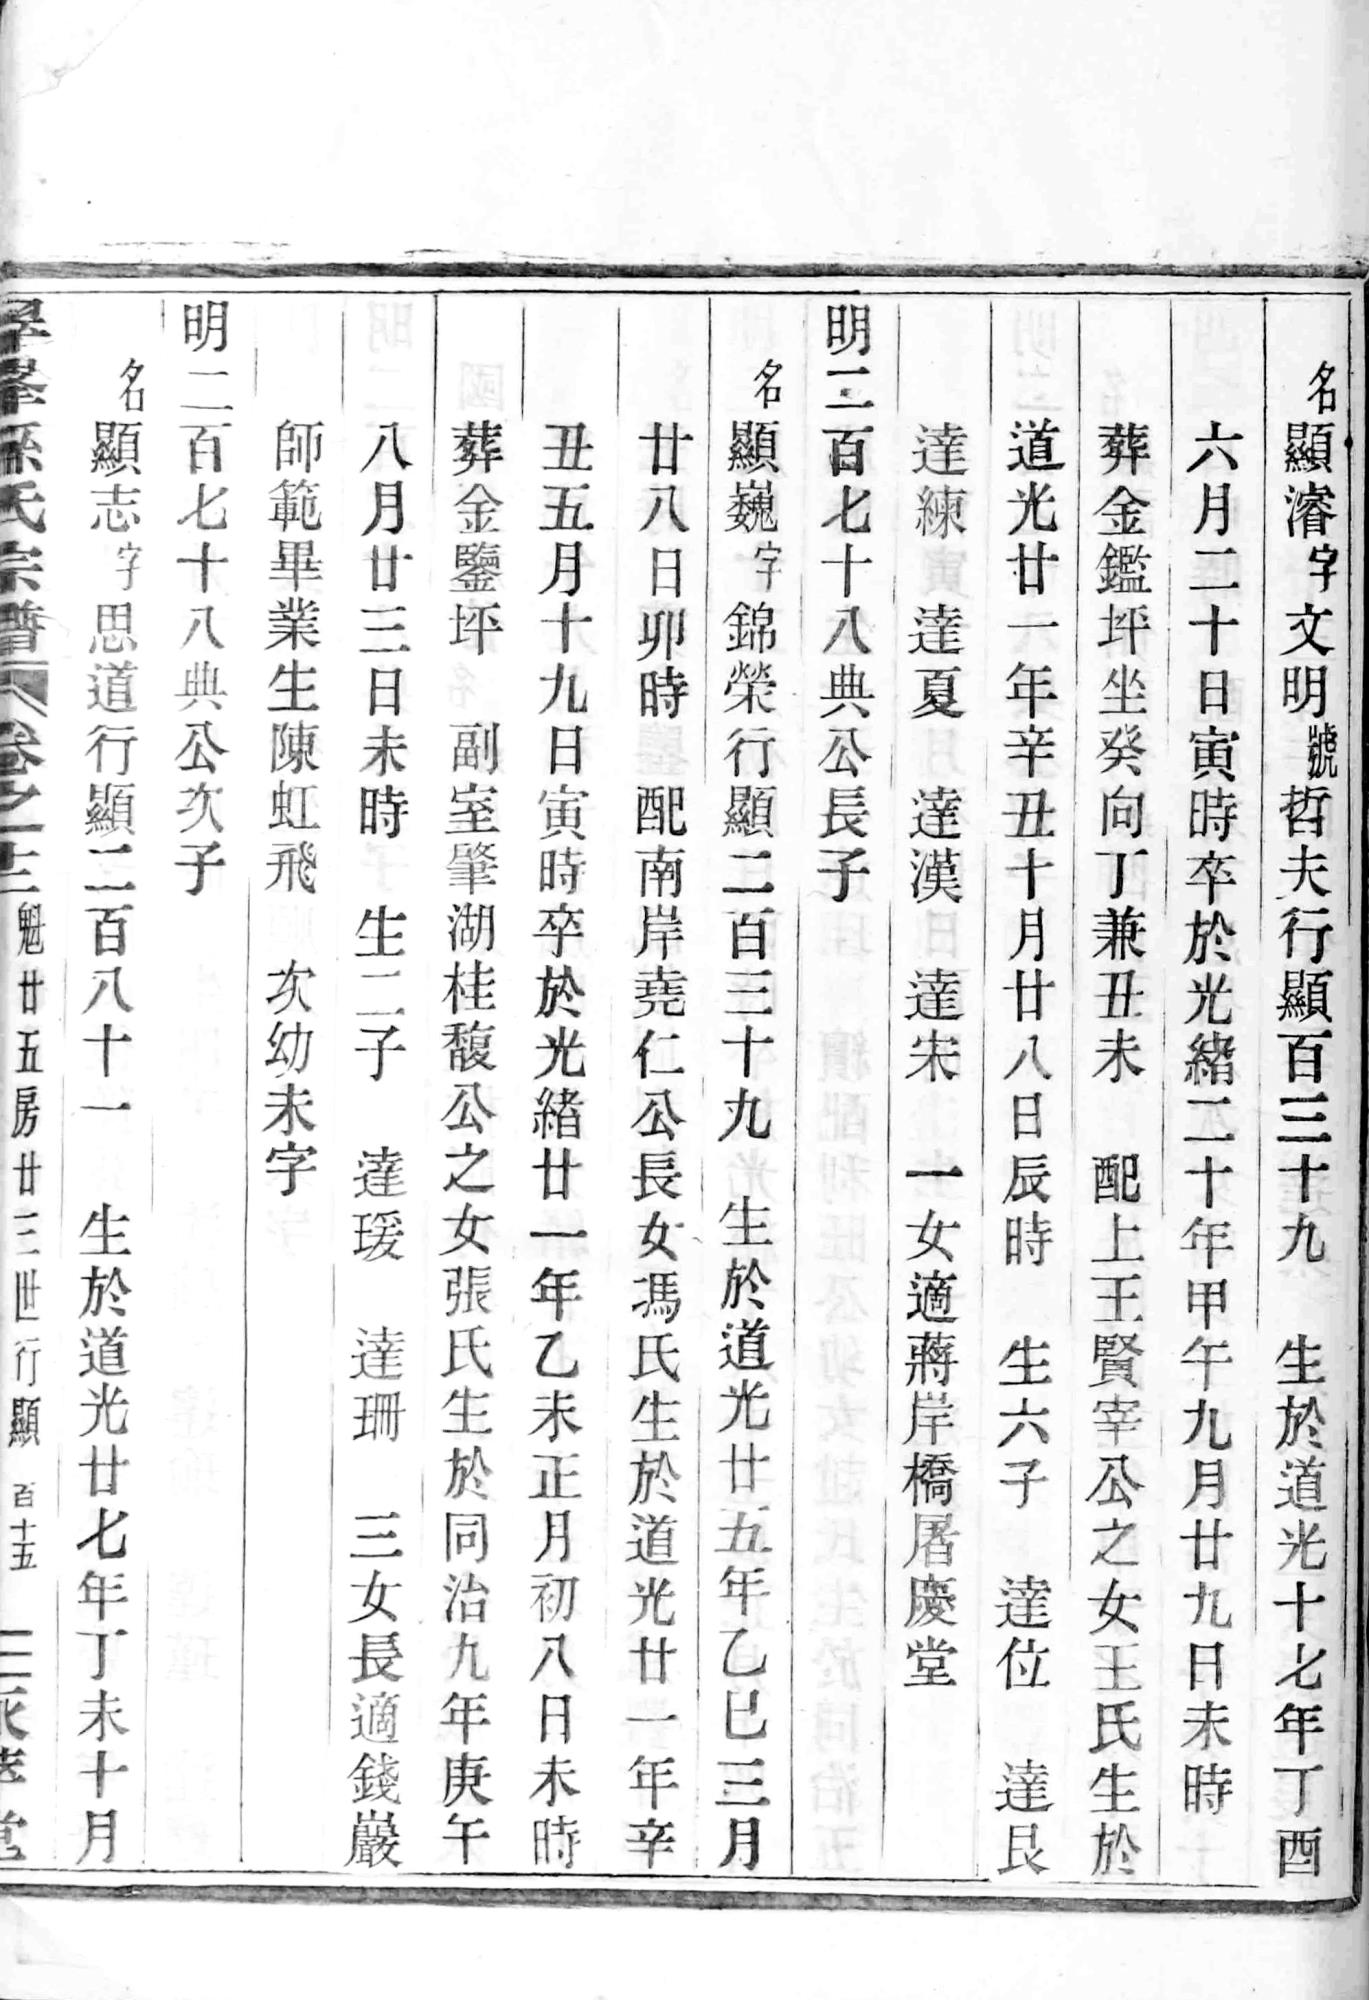 名顯濬字文明號哲夫行顯百三十九　生於道光十七年丁酉
六月二十日寅時卒於光緒二十年甲午九月廿九日未時
葬金鑑坪坐癸向丁兼丑未　配上王賢宰公之女王氏生於
道光廿一年辛丑十月廿八日辰時　生六子　達位　達艮
達練　達夏　達漢　達宋　一女適蔣岸橋屠慶堂
明二百七十八典公長子
名顯巍字錦榮行顯二百三十九　生於道光廿五年乙巳三月
廿八日卯時　配南岸堯仁公長女馮氏生於道光廿一年辛
丑五月十九日寅時卒於光緒廿一年乙未正月初八日未時
葬金鑒坪　副室肇湖桂馥公之女張氏生於同治九年庚午
八月廿三日未時　生二子　達瑗　達珊　三女長適錢巖
師範畢業生陳虹飛　次幼未字
明二百七十八典公次子
名顯志字思道行顯二百八十一　生於道光廿七年丁未十月
孫氏宗譜　卷之十三　魁廿五房廿三世行顯　百十五　三　永堂